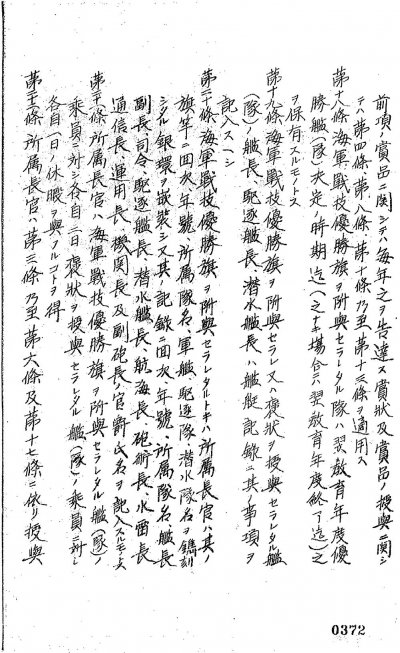 前項ノ賞品ニ関シテハ毎年之ヲ告達ス賞状及賞品ノ授與ニ関シ
テハ第四條第八條、第十條乃至第十三條ヲ適用ス
第十八條 海軍戰技優勝旗ヲ附與セラレタル隊ハ翌敎育年度優
勝艦(隊)決定ノ時期迄(之ナキ場合ニハ翌敎育年度終了迄)之
ヲ保有スルモノトス
第十九條 海軍戰技優勝旗ヲ附與セラレ又ハ褒狀ヲ授與セラレタル艦
(隊)ノ艦長、駆逐艦長、潜水艦長ハ艦艇記録ニ其ノ事項ヲ
記入スヘシ
第二十條 海軍戰技優勝旗ヲ附與セラレタルトキハ所属長官ハ其ノ
旗竿ニ回次、年號、所属隊名、軍艦、駆逐隊、潜水隊名ヲ鐫刻
シタル銀環ヲ嵌装シ又其ノ記録ニ回次、年號、所属隊名、艦長
副長、司令、駆逐艦長、潜水艦長、航海長、砲術長、水雷長
通信長、運用長、機関長及副砲長ノ官爵氏名ヲ記入スルモノトス
第二十一條 所属長官ハ海軍戰技優勝旗ヲ附與セラレタル艦(隊)ノ
乘員ニ対シ各自二日褒狀ヲ授與セラレタル艦(隊)ノ乘員ニ対シ
各自一日ノ休暇ヲ與フルコトヲ得
第二十二條 所属長官ハ第三條乃至第六條及第十七條ニ依リ授與
0372